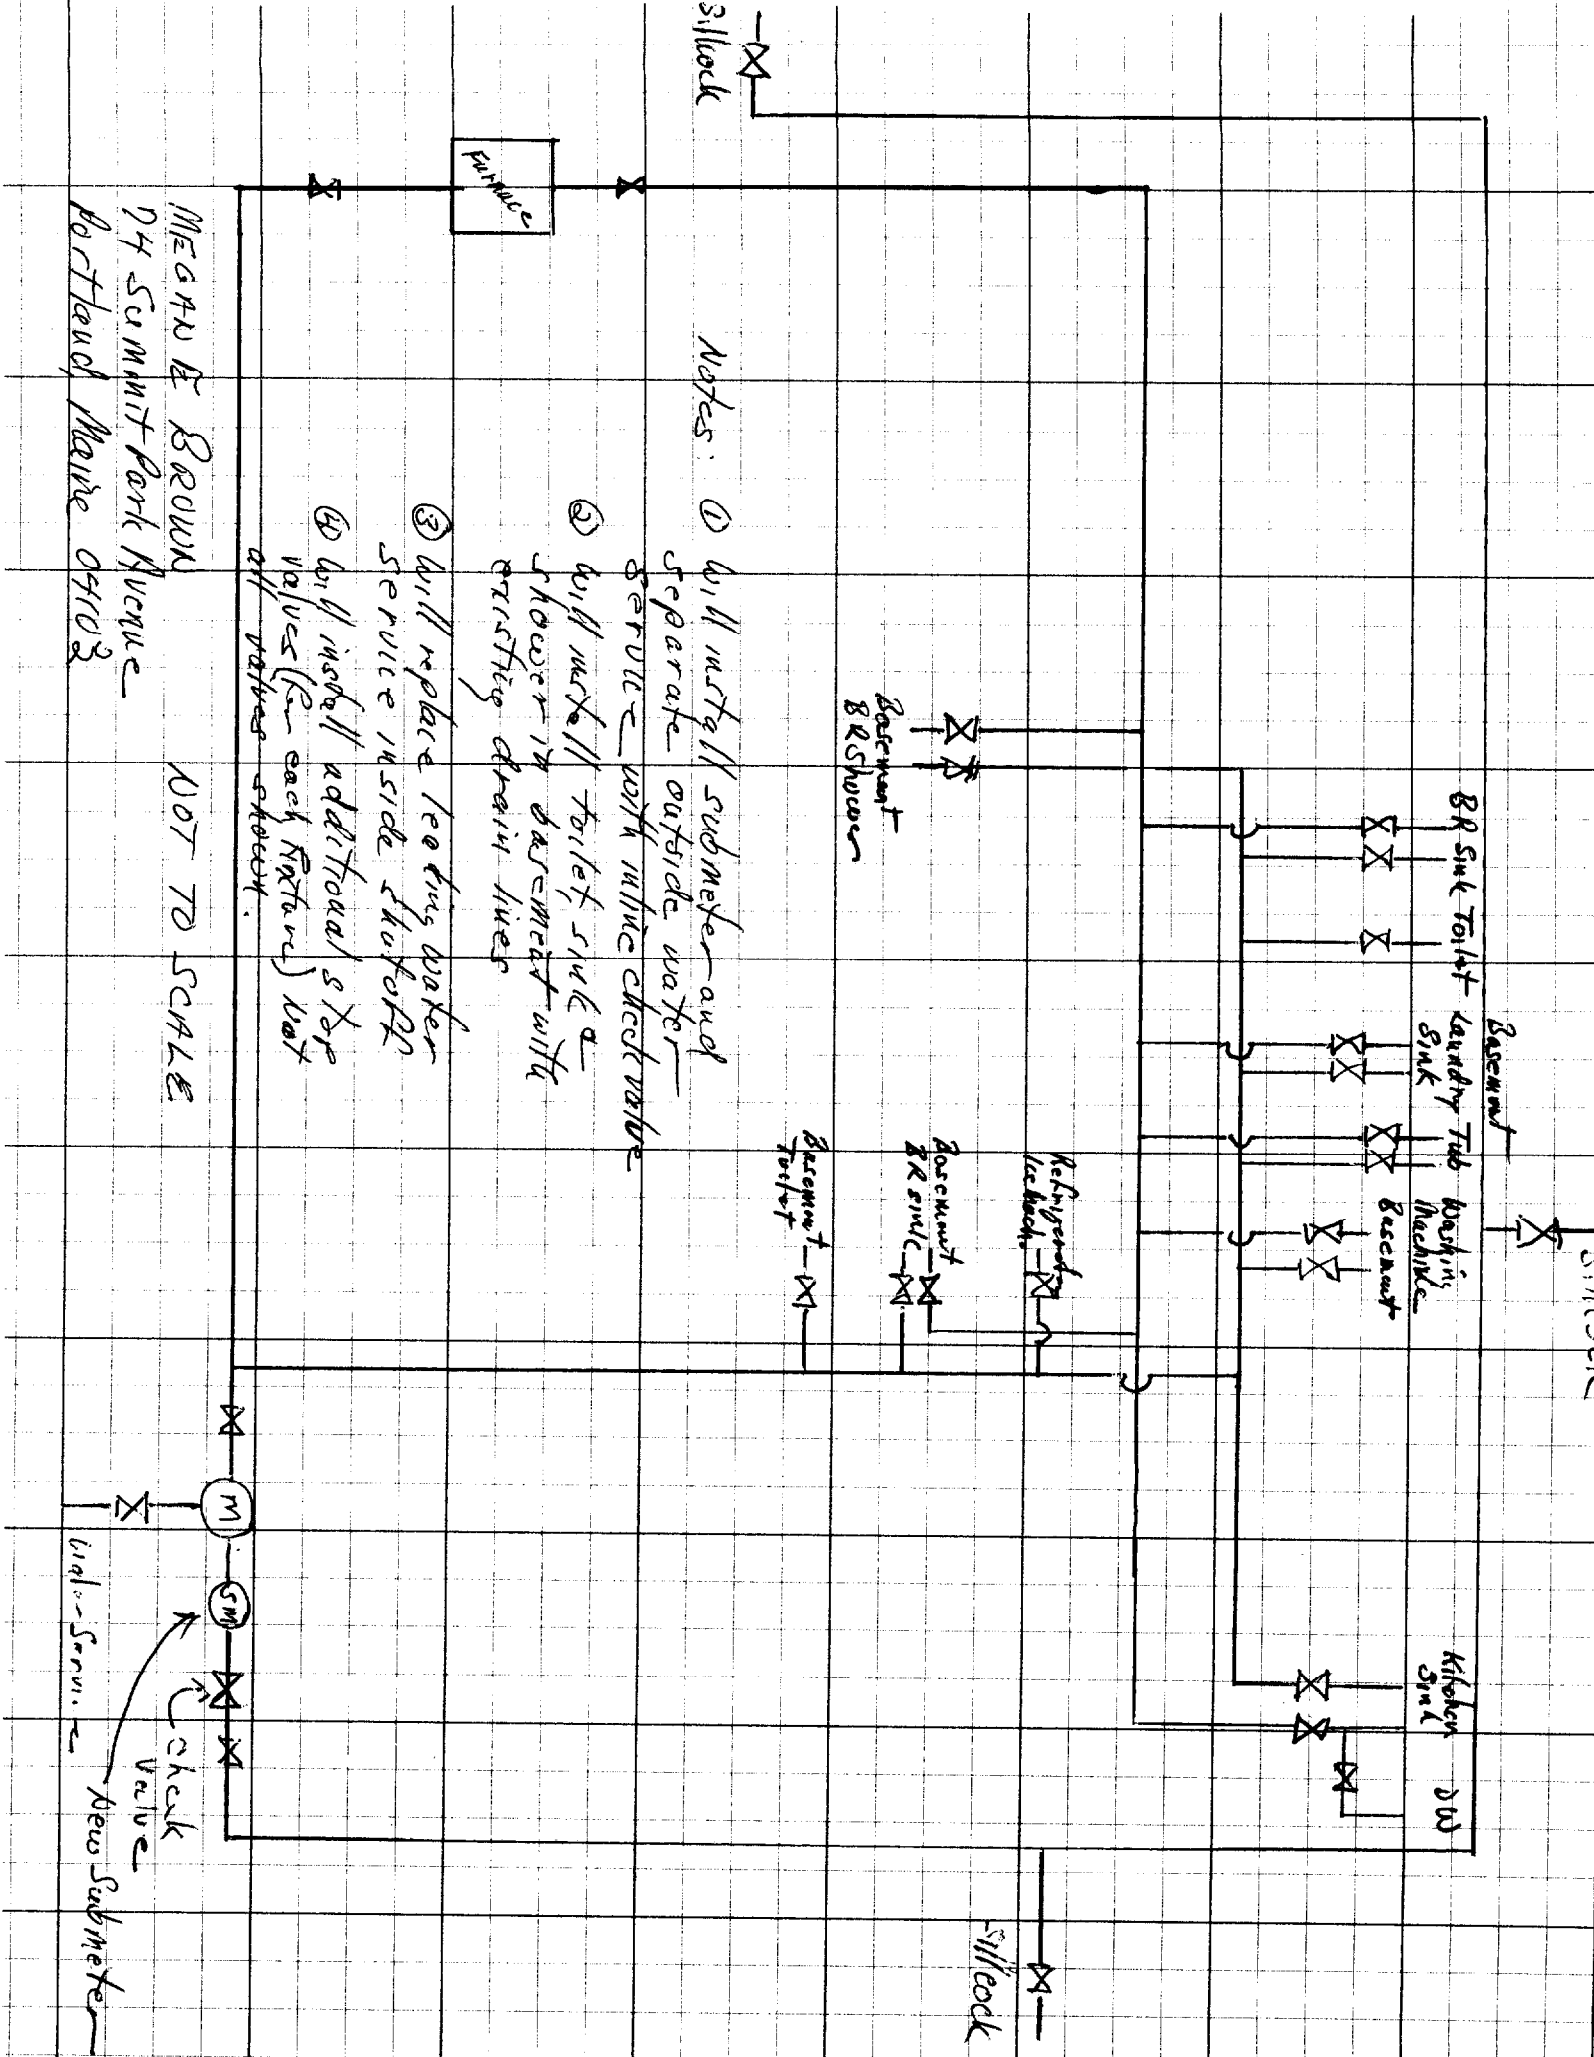 Sillcock
BR Sink Toilet Laundry Tub Washing
Sink Machine
Basement
Basement
Sillcock
Kitchen DW
Sink
Refrigerator
Basement
BR Shower
Basement
BR sink
Basement
Toilet
Sillcock
Furnace
Notes: ① Will install submeter and
separate outside water
service with inline check valve
② Will install toilet, sink &
shower in basement with
existing drain lines
③ Will replace leaking water
service inside shutoff
④ Will install additional stop
valves (for each fixture) not
all valves shown.
MEGAN E BROWN
74 Summit Park Avenue
Portland, Maine 04103
NOT TO SCALE
M
SM
check
valve
New Submeter
Water Service